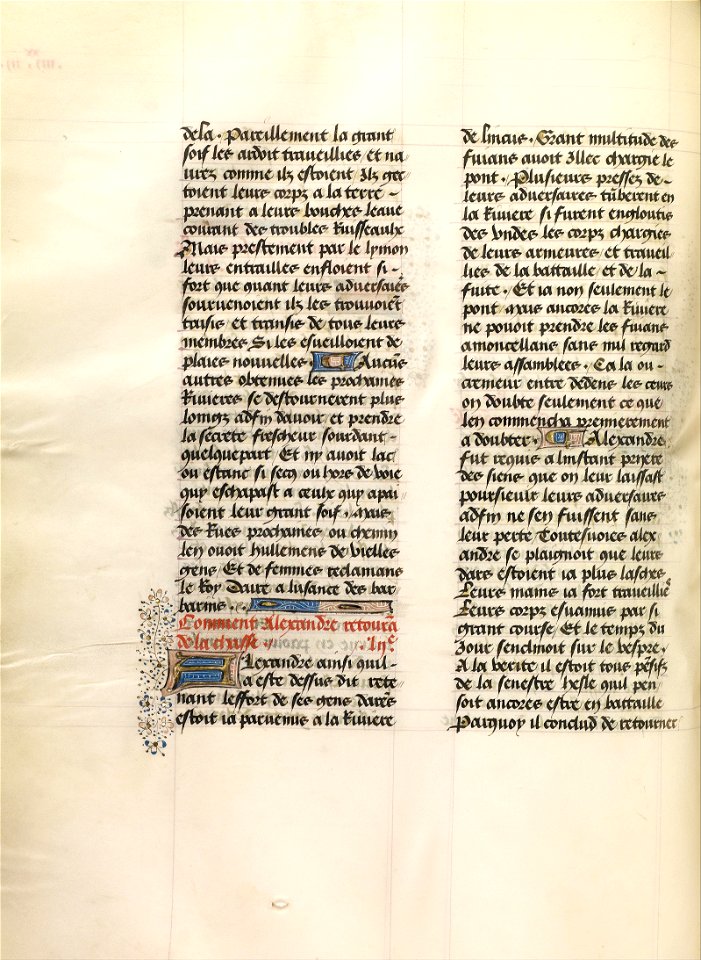 dela . Pareillement la grant
soif les ardoit traueillies et na
urez comme ilz estoient Ilz get
toient leurs corpz a la terre ~
prenant a leurs bouches leaue
courant des troubles Ruisseaulx
Mais prestement par le lymon
leurs entrailles enfloient si ~
fort que quant leurs aduersaires
souruenoient ilz les trouuoiẽt
transis et transis de tous leurs
membres Si les esueilloient de
plaies nouuelles . Aucũs
autres obtenues les prochaines
Riuieres se destournerent plus
loingz adfin dauoir et prendre
la secrete frescheur sourdant ~
quelquepart Et ny auoit lac
ou estanc si secq ou hors de voie
quy eschapast a ceulx quy apai
soient leur grant soif . mais
des Rues prochaines ou chemin
len ouoit hullemens de vielles
gens Et de femmes reclamans
le Roy Daire a lusance des bar
barins .
Comment Alexandre retourna
de la chasse . . lijᵉ
Alexandre ainsi quil ~
a este dessus dit rete
nant leffort de ses gens darẽs
estoit ia paruenus a la Riuiere
de lincus . Grant multitude des
fuians auoit Illec chargie le
pont . Plusieurs pressez de ~
leurs aduersaires tũberent en
la Riuiere si furent engloutis
des vndes les corpz chargies
de leurs armeures et traueil
lies de la battaille et de la ~
fuite . Et ia non seulement le
pont mais ancores la Riuiere
ne pouoit prendre les fuians
amoncellans sans nul regard
leurs assamblees . Ca la ou ~
cremeur entre dedens les ceurs
on doubte seulement ce que
len commencha premierement
a doubter . Alexandre
fut requis a linstant pryere
des siens que on leur laissast
poursieuir leurs aduersaires
adfin ne sen fuissent sans
leur perte Toutesuoies alex
andre se plaignoit que leurs
dars estoient ia plus lasches
Leurs mains ia fort traueilliés
Leurs corpz esuanuis par si
grant course Et le temps du
Jour senclinoit sur le vespre .
A la verite il estoit tous pẽsifz
de la senestre hesle quil pen
soit ancores estre en battaille
Parquoy il conclud de retourner